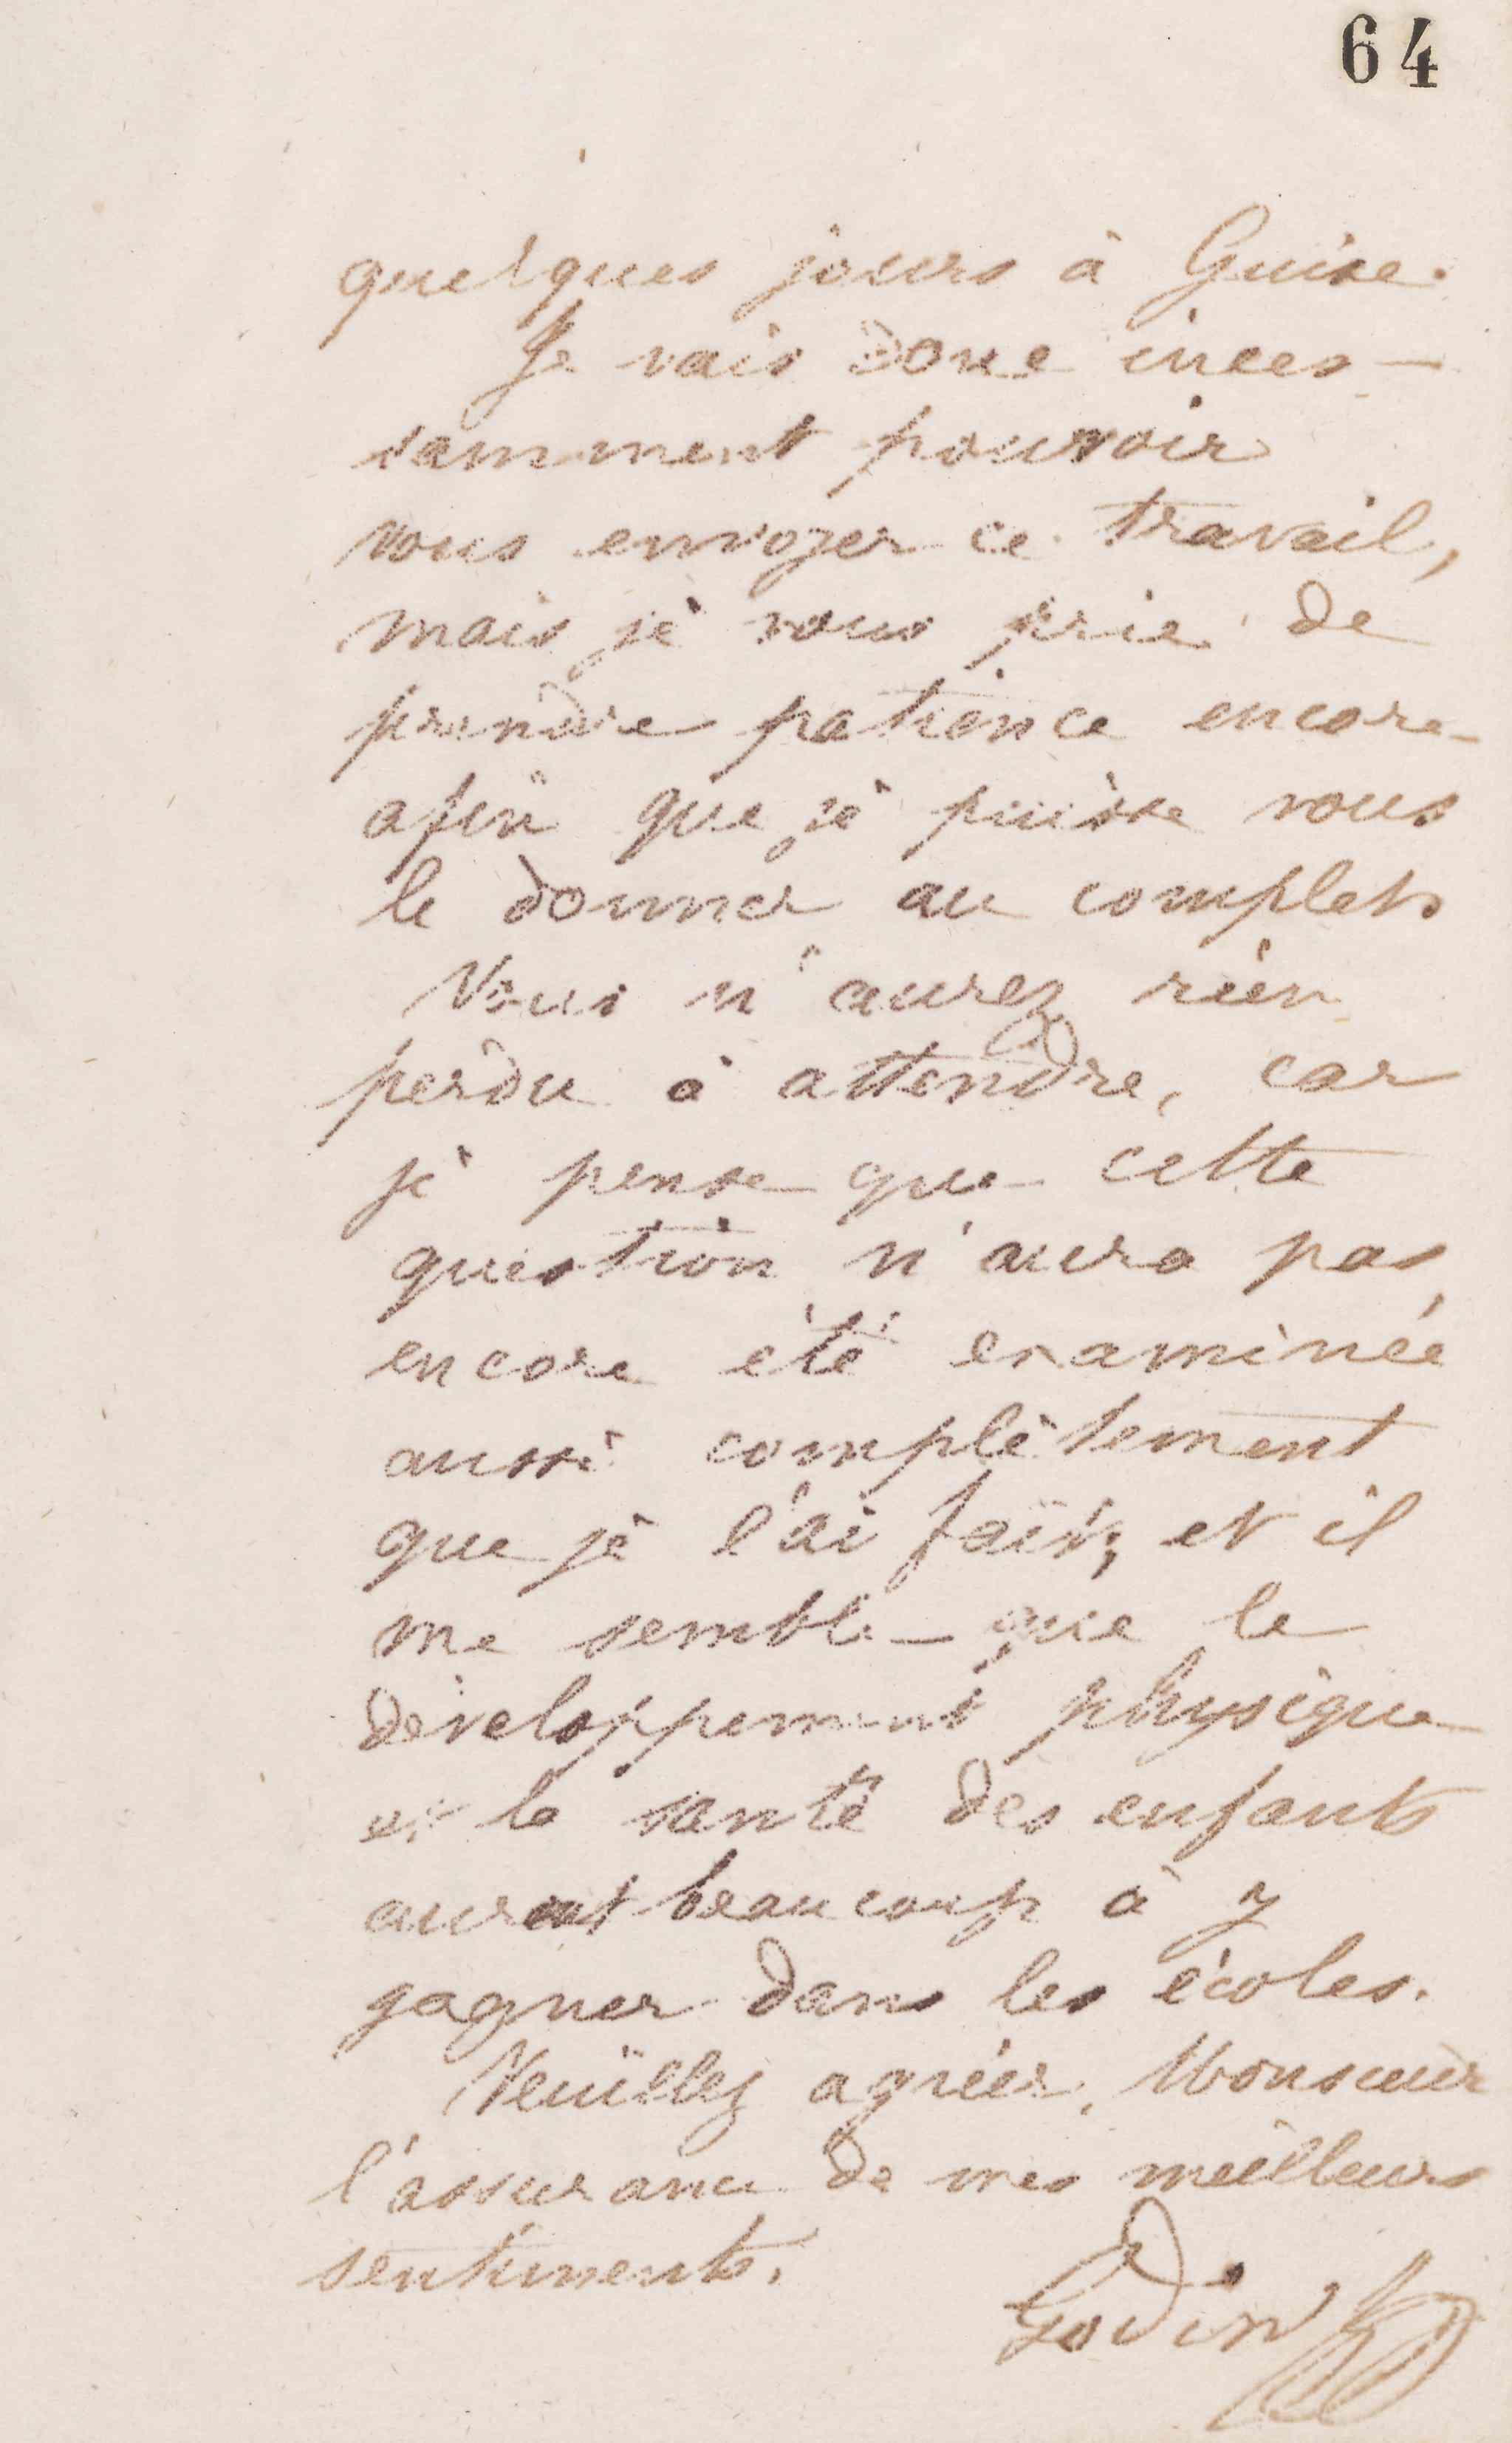 64
quelques jours à Guise.
Je vais donc inces-
samment pouvoir
vous envoyer ce travail,
mais je vous prie de
prendre patience encore
afin que je puisse vous
le donner au complet.
Vous n'aurez rien
perdu à attendre, car
je pense que cette
question n'aura pas
encore été examinée
aussi complètement
que je l'ai fait, et il
me semble que le
développement physique
et la santé des enfants
auront beaucoup à y
gagner dans les écoles.
Veuillez agréer, Monsieur
l'assurance de mes meilleurs
sentiments.
Godin